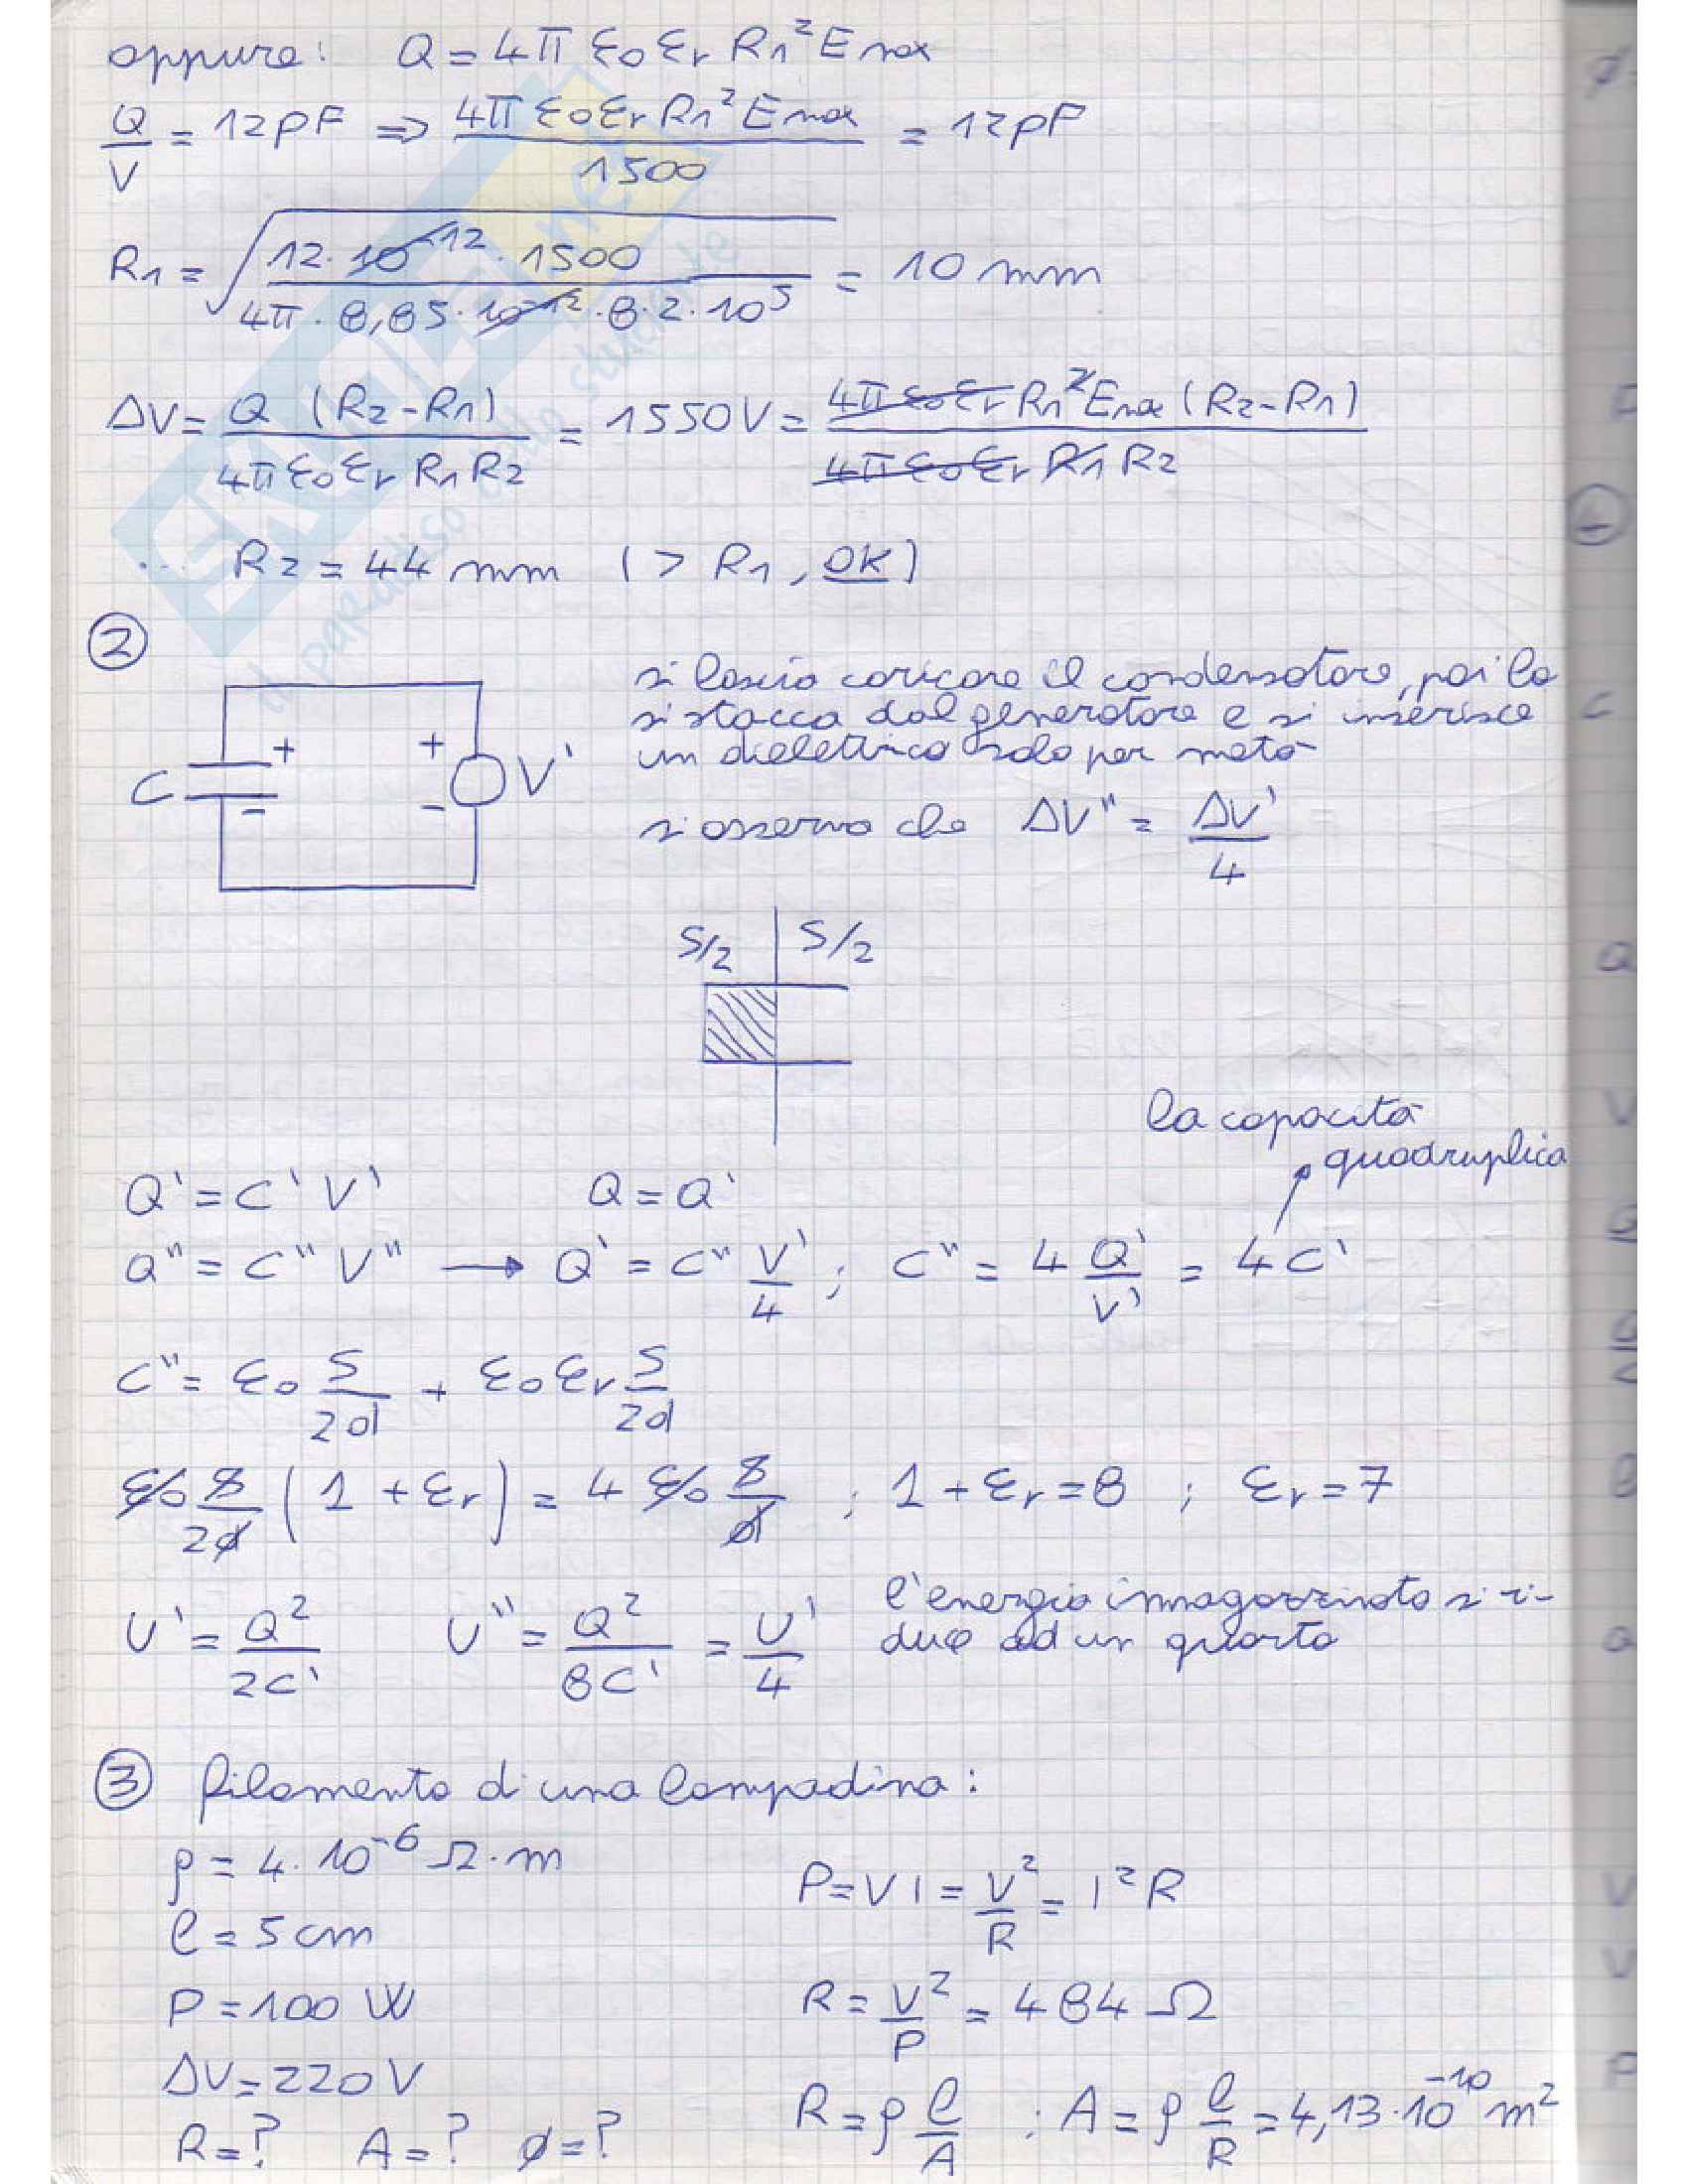 oppure: Q = 4π ε0 εr R1² Emax
Q/V = 12pF => 4π ε0 εr R1² Emax / 1500 = 12pF
R1 = √(12·10^-12·1500 / 4π·8,85·10^-12·8·2·10^5) = 10 mm
ΔV = Q (R2-R1) / 4π ε0 εr R1 R2 = 1550V = 4π ε0 εr R1² Emax (R2-R1) / 4π ε0 εr R1 R2
... R2 = 44 mm (> R1, OK)
2
si lascia caricare il condensatore, poi lo
si stacca dal generatore e si inserisce
un dielettrico solo per metà
C + - + - V'
si osserva che ΔV" = ΔV'/4
S/2 S/2
la capacità
quadruplica
Q' = C' V' Q = Q'
Q" = C" V" → Q' = C" V'/4 ; C" = 4 Q'/V' = 4C'
C" = ε0 S/2d + ε0 εr S/2d
ε0 S/2d (1 + εr) = 4 ε0 S/d ; 1 + εr = 8 ; εr = 7
l'energia immagazzinata si ri-
duce ad un quarto
U' = Q²/2C' U" = Q²/8C' = U'/4
3 filamento di una lampadina:
ρ = 4·10^-6 Ω·m
P = VI = V²/R = I²R
l = 5 cm
P = 100 W
R = V²/P = 484 Ω
ΔV = 220 V
R = ρ l/A ; A = ρ l/R = 4,13·10^-10 m²
R = ? A = ? ø = ?